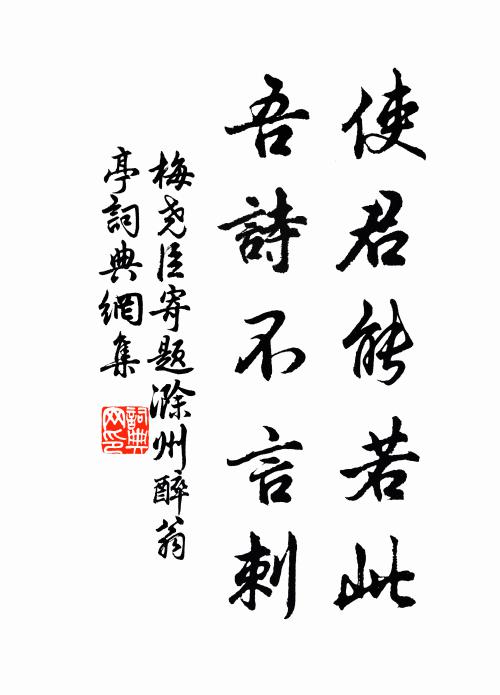 使君能若此
吾詩不言刺
梅尧臣寄题滁州醉翁
亭詞典網集
詞典网印